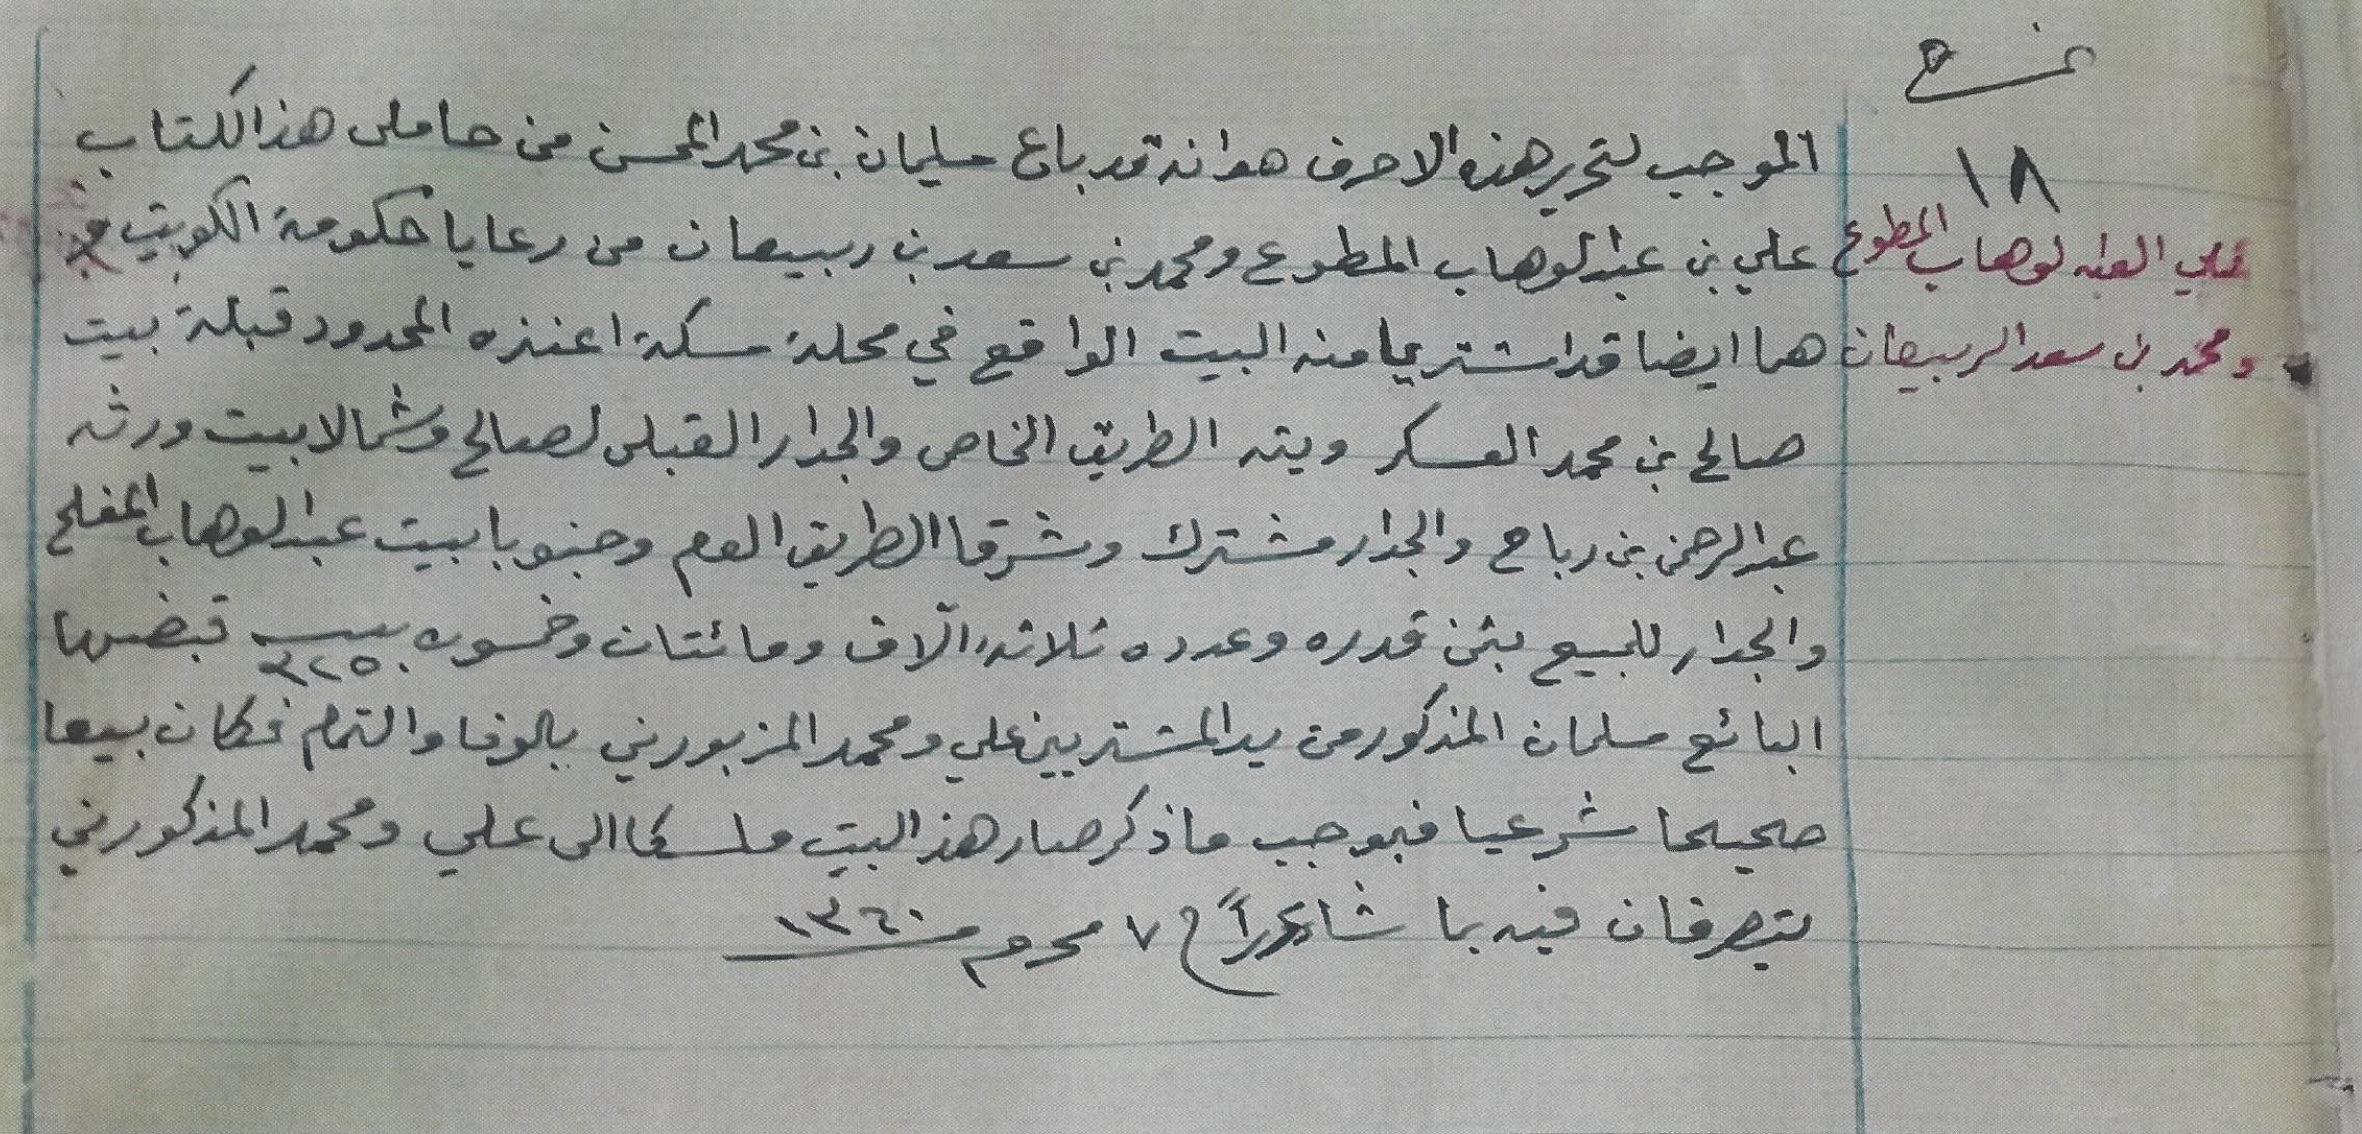 ١٨
علي العبدلوهاب المطوع
ومحمد بن سعد الربيعان
الموجب لتحرير هذه الاحرف هو انه قد باع سليمان بن محمد المحسن من حاملى هذا الكتاب
علي بن عبدالوهاب المطوع ومحمد بن سعد بن ربيعان من رعايا حكومة الكويت
هما ايضا قد اشتريا منه البيت الواقع في محلة سكة اعنزه المحدود قبلة بيت
صالح بن محمد العسكر ويته الطريق الخاص والجدار القبلى لصالح وشمالا بيت ورثه
عبدالرحمن بن رباح والجدار مشترك وشرقا الطريق العام وجنوبا بيت عبدالوهاب المفلح
والجدار للمبيع بثمن قدره وعدده ثلاثه الآف ومائتان وخمسون ربيه ٣٢٥٠ قبضها
البائع سلمان المذكور من يد المشتريين علي ومحمد المزبورين بالوفا والتمام فكان بيعا
صحيحا شرعيا فبموجب ما ذكر صار هذا البيت ملسكا الى علي ومحمد المذكورين
يتصرفان فيه بما شاء ٧ محرم ١٣٦٠